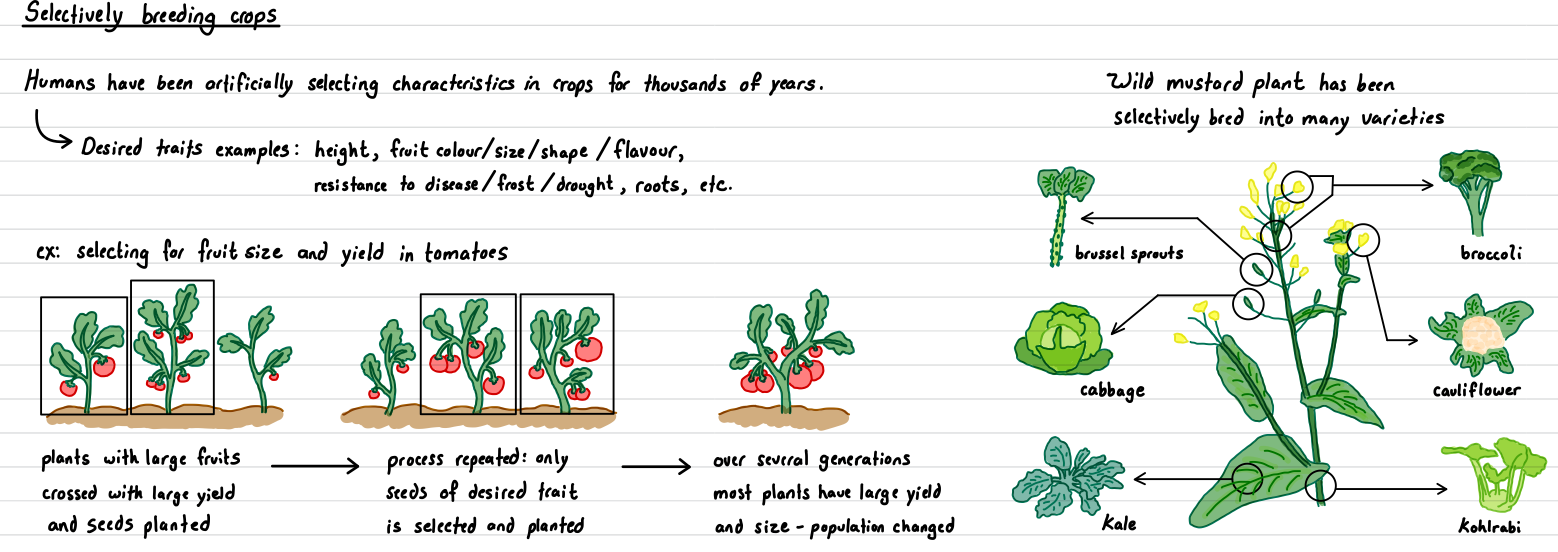 Selectively breeding crops
Humans have been artificially selecting characteristics in crops for thousands of years.
Desired traits examples: height, fruit colour/size/shape/flavour,
resistance to disease/frost/drought, roots, etc.
ex: selecting for fruit size and yield in tomatoes
plants with large fruits
crossed with large yield
and seeds planted
process repeated: only
seeds of desired trait
is selected and planted
over several generations
most plants have large yield
and size - population changed
Wild mustard plant has been
selectively bred into many varieties
brussel sprouts
broccoli
cabbage
cauliflower
Kale
Kohlrabi